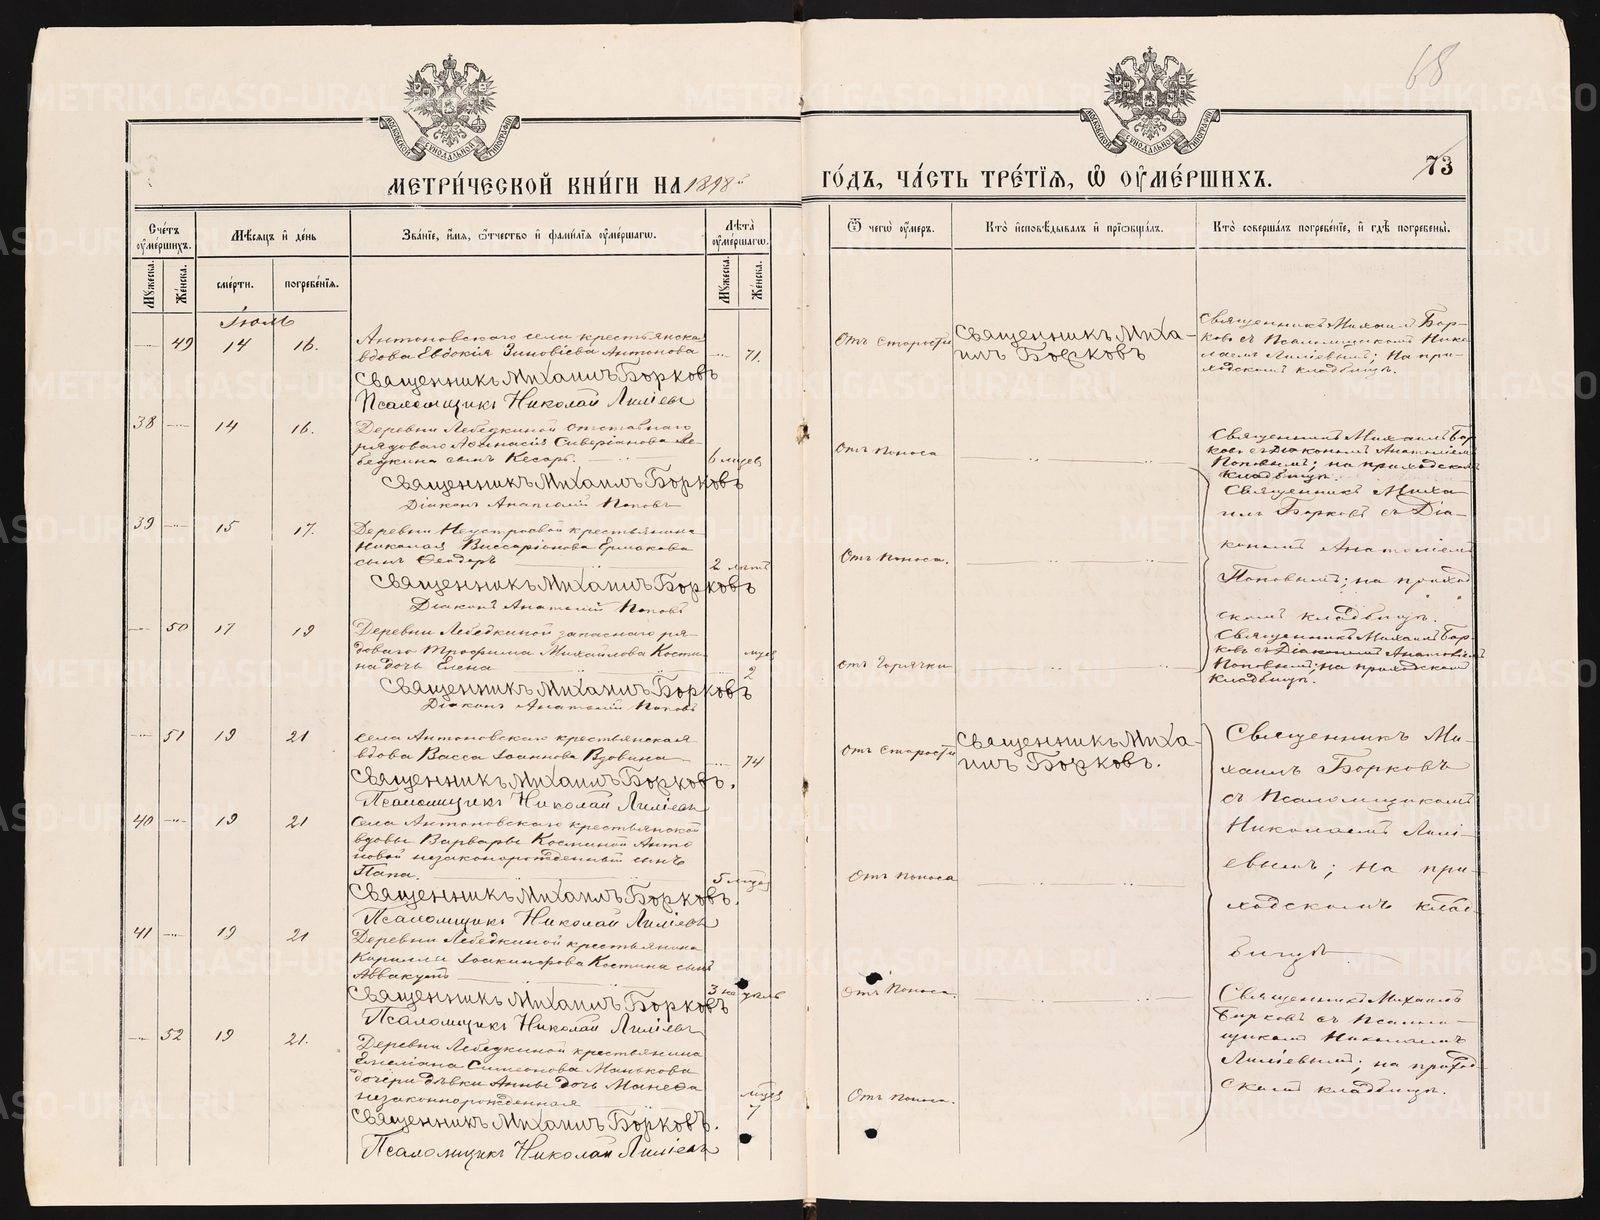 68
73
МОСКОВСКОЙ СѴНОДАЛЬНОЙ ТИПОГРАФІИ
МОСКОВСКОЙ СѴНОДАЛЬНОЙ ТИПОГРАФІИ
МЕТРИ́ЧЕСКОЙ КНИ́ГИ НА 1898й ГО́ДЪ, ЧА́СТЬ ТРЕ́ТІѦ, Ѡ҆ ОУ҆МЕ́РШИХЪ.
Сче́тъ оу҆ме́ршихъ.
Мѣ́сяцъ и҆ де́нь
Зва́ніе, и҆́мѧ, ѻ҆́тчество и҆ фами́лїѧ оу҆ме́ршагѡ.
Лѣ́та оу҆ме́ршагѡ.
Ѿ чегѡ̀ оу҆́меръ.
Кто̀ и҆сповѣ́дывалъ и҆ прїѡбща́лъ.
Кто̀ соверша́лъ погребе́нїе, и҆ гдѣ̀ погребены̀.
Мꙋ́жеска.
Же́нска.
сме́рти.
погребе́нїѧ.
Мꙋ́жеска.
Же́нска.
Іюль
49 14 16.
Антоновскаго села крестьянска
вдова Евдокія Зиновіева Антонова
71.
Священникъ Михаилъ Борковъ
Псаломщикъ Николай Лиліевъ
Отъ старости
Священникъ Миха-
илъ Борковъ
Священникъ Михаилъ Бор-
ковъ съ Псаломщикомъ Нико
лаемъ Лиліевымъ; на при-
ходскомъ кладбищѣ.
38 14 16.
Деревни Лебедкиной отставнаго
рядоваго Афанасія Сиверіанова Ле-
бедкина сынъ Кесарь.
6 мцев
Священникъ Михаилъ Борковъ
Діаконъ Анатолій Поповъ
Отъ поноса
Священникъ Михаилъ Бор
ковъ съ Діакономъ Анатоліем
Поповымъ; на приходском
кладбищѣ.
39 15 17.
Деревни Неустроевой крестьянина
Николая Виссаріонова Ермакова
сынъ Ѳеодоръ
2 лѣтъ
Священникъ Михаилъ Борковъ
Діаконъ Анатолій Поповъ
Отъ поноса.
Священникъ Миха
илъ Борковъ съ Діа-
кономъ Анатоліемъ
Поповымъ; на приход
скомъ кладбищѣ.
50 17 19
Деревни Лебедкиной запаснаго ря-
доваго Трофима Михайлова Кости-
на дочь Елена
мцев
2
Священникъ Михаилъ Борковъ
Діаконъ Анатолій Поповъ
Отъ горячки
Священникъ Михаилъ Бор-
ковъ съ Діакономъ Анатоліем
Поповымъ; на приходском
кладбищѣ.
51 19 21
Села Антоновскаго крестьянская
вдова Васса Іоаннова Вдовина
74
Священникъ Михаилъ Борковъ.
Псаломщикъ Николай Лиліевъ
Отъ старости
Священникъ Миха-
илъ Борковъ.
Священникъ Ми-
хаилъ Борковъ
съ Псаломщикомъ
Николаемъ Лилі-
евымъ; на при-
ходскомъ клад-
бищѣ
40 19 21
Села Антоновскаго крестьянской
вдовы Варвары Косминой Анто
новой незаконорожденный сынъ
Папа.
5 мцев
Священникъ Михаилъ Борковъ.
Псаломщикъ Николай Лиліевъ
Отъ поноса
41 19 21
Деревни Лебедкиной крестьянина
Кирилла Іоакинфова Костина сынъ
Аввакумъ
3 недѣль
Священникъ Михаилъ Борковъ
Псаломщикъ Николай Лиліевъ
Отъ поноса.
Священникъ Михаилъ
Борковъ съ Псалом-
щикомъ Николаемъ
Лиліевымъ; на приход
скомъ кладбищѣ.
52 19 21.
Деревни Лебедкиной крестьянина
Емеліана Симеонова Манькова
дочери дѣвки Анны дочь Манефа
незаконнорожденная
мцев
7
Священникъ Михаилъ Борковъ.
Псаломщикъ Николай Лиліевъ
Отъ поноса.
METRIKI.GASO-URAL.RU